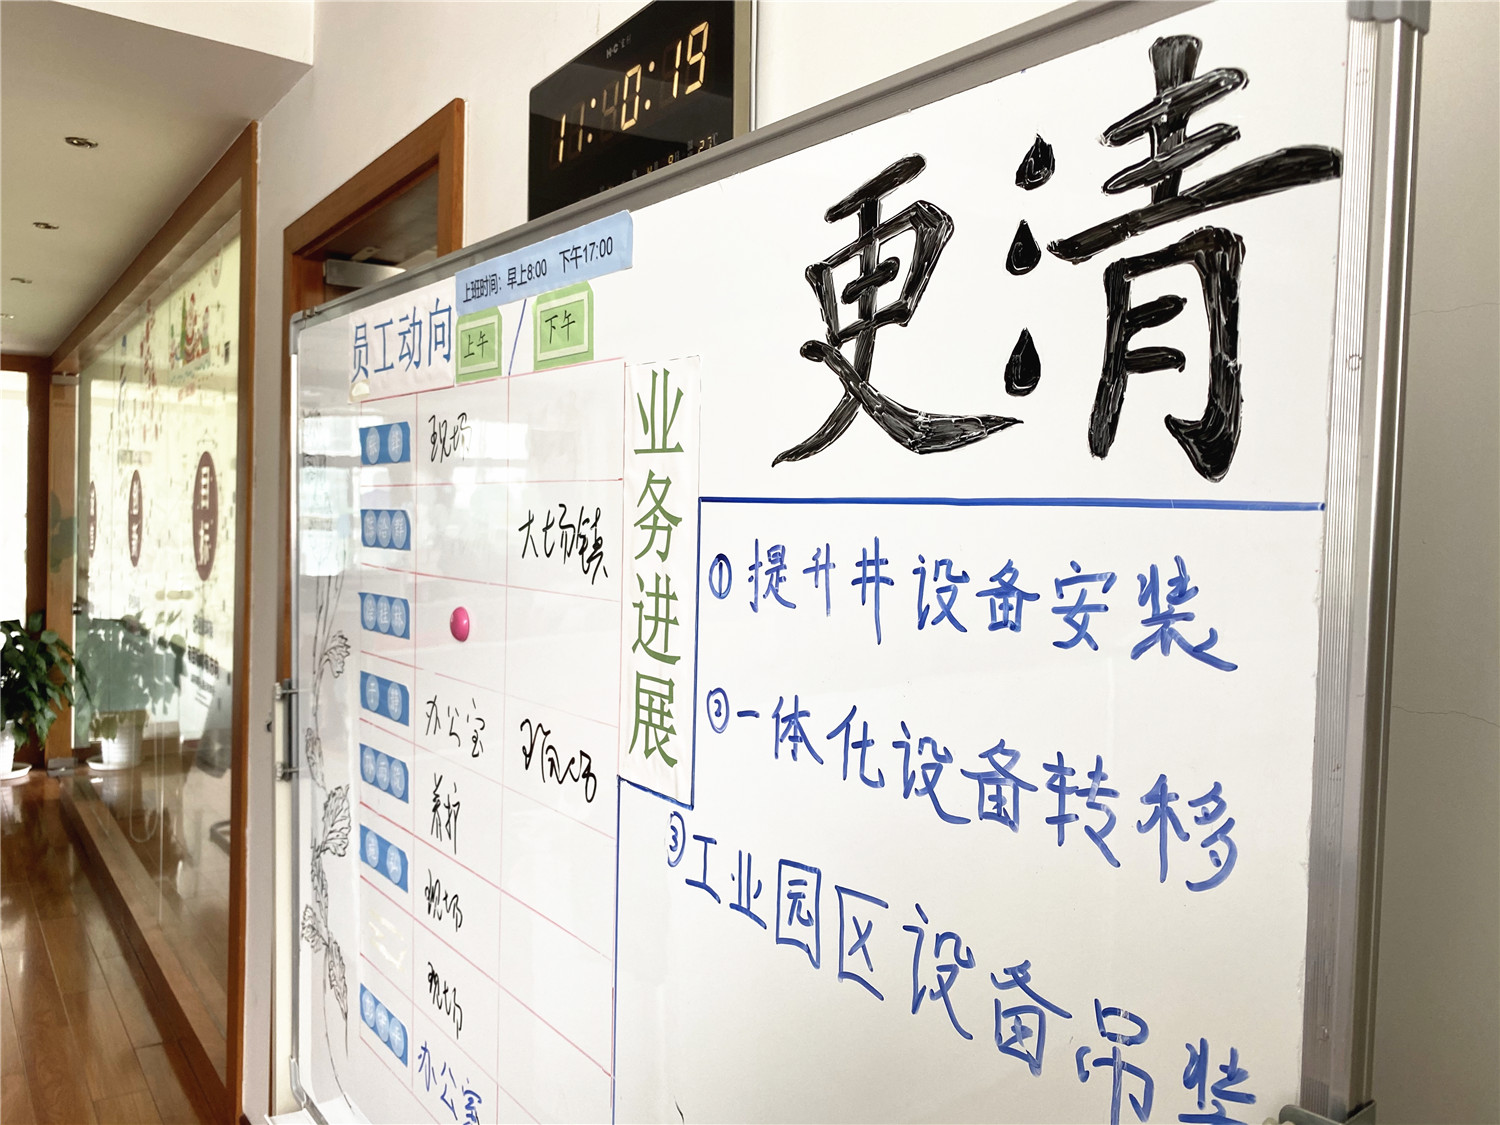 17:40:19
更清
上班时间：早上8:00 下午17:00
员工动向
上午 / 下午
现场
大场镇
办公室 现场
养护
现场
现场
办公室
业务进展
①提升井设备安装
②一体化设备转移
③工业园区设备吊装
目标